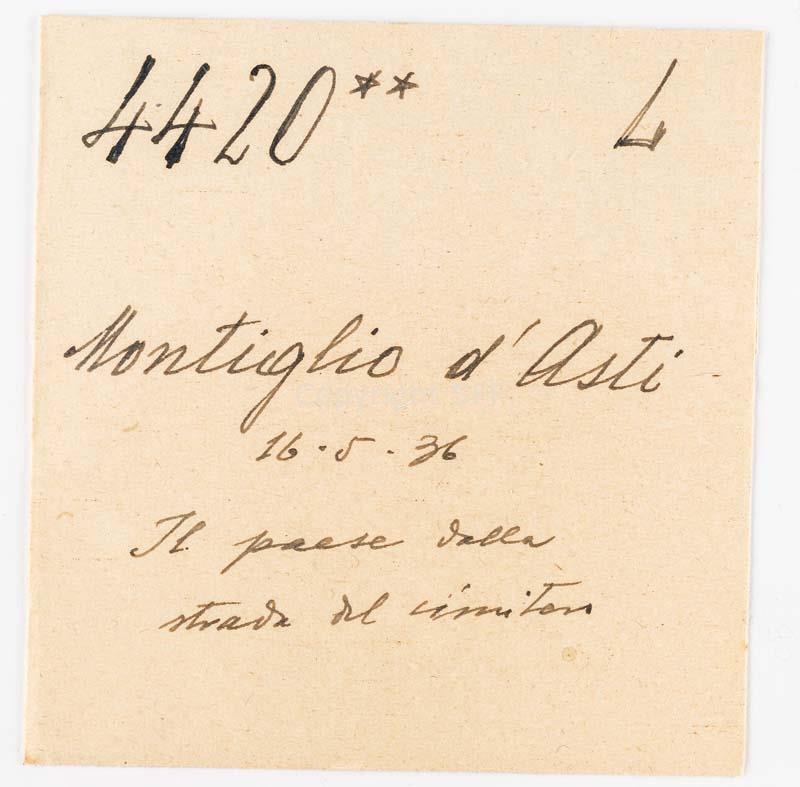 4420** L
Montiglio d'Asti
16.5.36
Il paese dalla
strada del cimitero